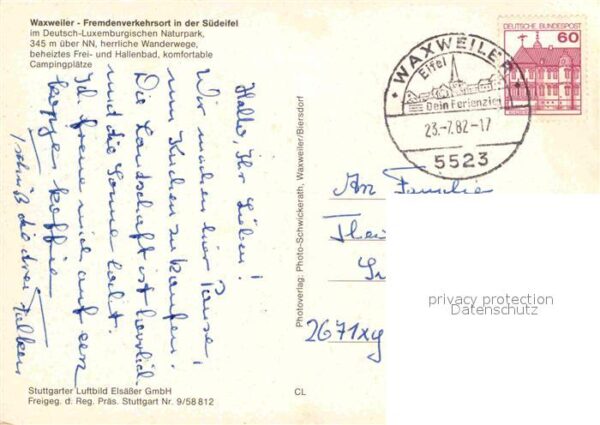 Waxweiler - Fremdenverkehrsort in der Südeifel
im Deutsch-Luxemburgischen Naturpark,
345 m über NN, herrliche Wanderwege,
beheiztes Frei- und Hallenbad, komfortable
Campingplätze
Hallo, Ihr Lieben!
Wir machen hier Pause,
um Kuchen zu kaufen.
Die Landschaft ist herrlich
und die Sonne lacht.
Ich freue mich auf
Tschüß die drei
Stuttgarter Luftbild Elsäßer GmbH
Freigeg. d. Reg. Präs. Stuttgart Nr. 9/58 812
CL
Photoverlag: Photo-Schwickerath, Waxweiler/Biersdorf
WAXWEILER
Eifel
Dein Ferienziel
23.-7.82-17
5523
DEUTSCHE BUNDESPOST
60
An Familie
2671xy
privacy protection
Datenschutz